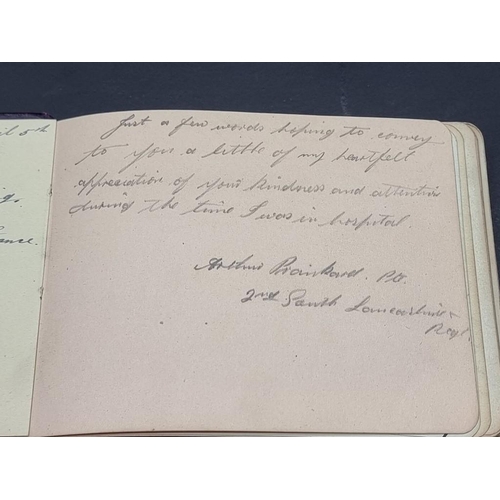 Just a few words hoping to convey
to you a little of my heartfelt
appreciation of your kindness and attention
during the time I was in hospital.
Arthur Prankard. Pte.
2nd South Lancashire
Regt.
il 5th